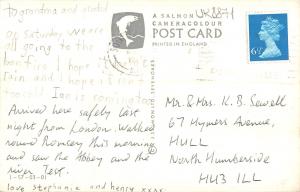 To grandma and
on Saturday we are
all going to the
bonfire I hope it
rain and I hope it is
Ian is coming to
Arrived here safely last
night from London. Walked
round Romsey this morning
and saw the Abbey and the
river Test.
love Stephanie and henry xxxx
A SALMON
CAMERACOLOUR
POST CARD
PRINTED IN ENGLAND
© J. SALMON LTD., SEVENOAKS
1-57-03-01
UK8871
6½P
Mr. & Mrs. K. B. Sewell
67 Hymers Avenue,
HULL
North Humberside
HU3 1LL